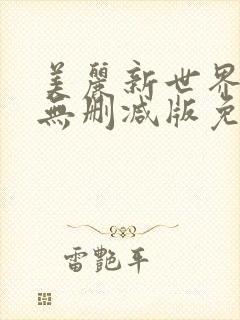 美麗新世界
無删减版免
雷艷平